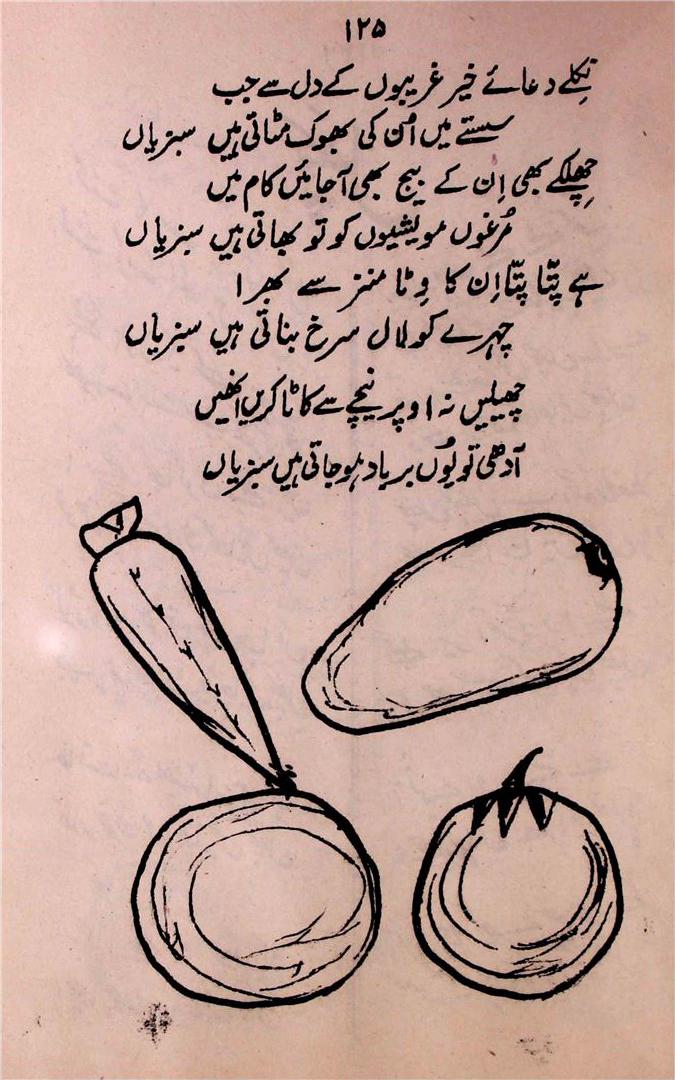 ۱۲۵
نکلے دعائے خیر غریبوں کے دل سے جب
سستے میں اُن کی بھوک مٹاتی ہیں سبزیاں
چھلکے بھی اِن کے بیج بھی آجائیں کام میں
مُرغوں مویشیوں کو تو بھاتی ہیں سبزیاں
ہے پتّا پتّا اِن کا وِٹامنز سے بھرا
چہرے کو لال سرخ بناتی ہیں سبزیاں
چھیلیں نہ اوپر نیچے سے کاٹا کریں انھیں
آدھی تو یُوں برباد ہو جاتی ہیں سبزیاں